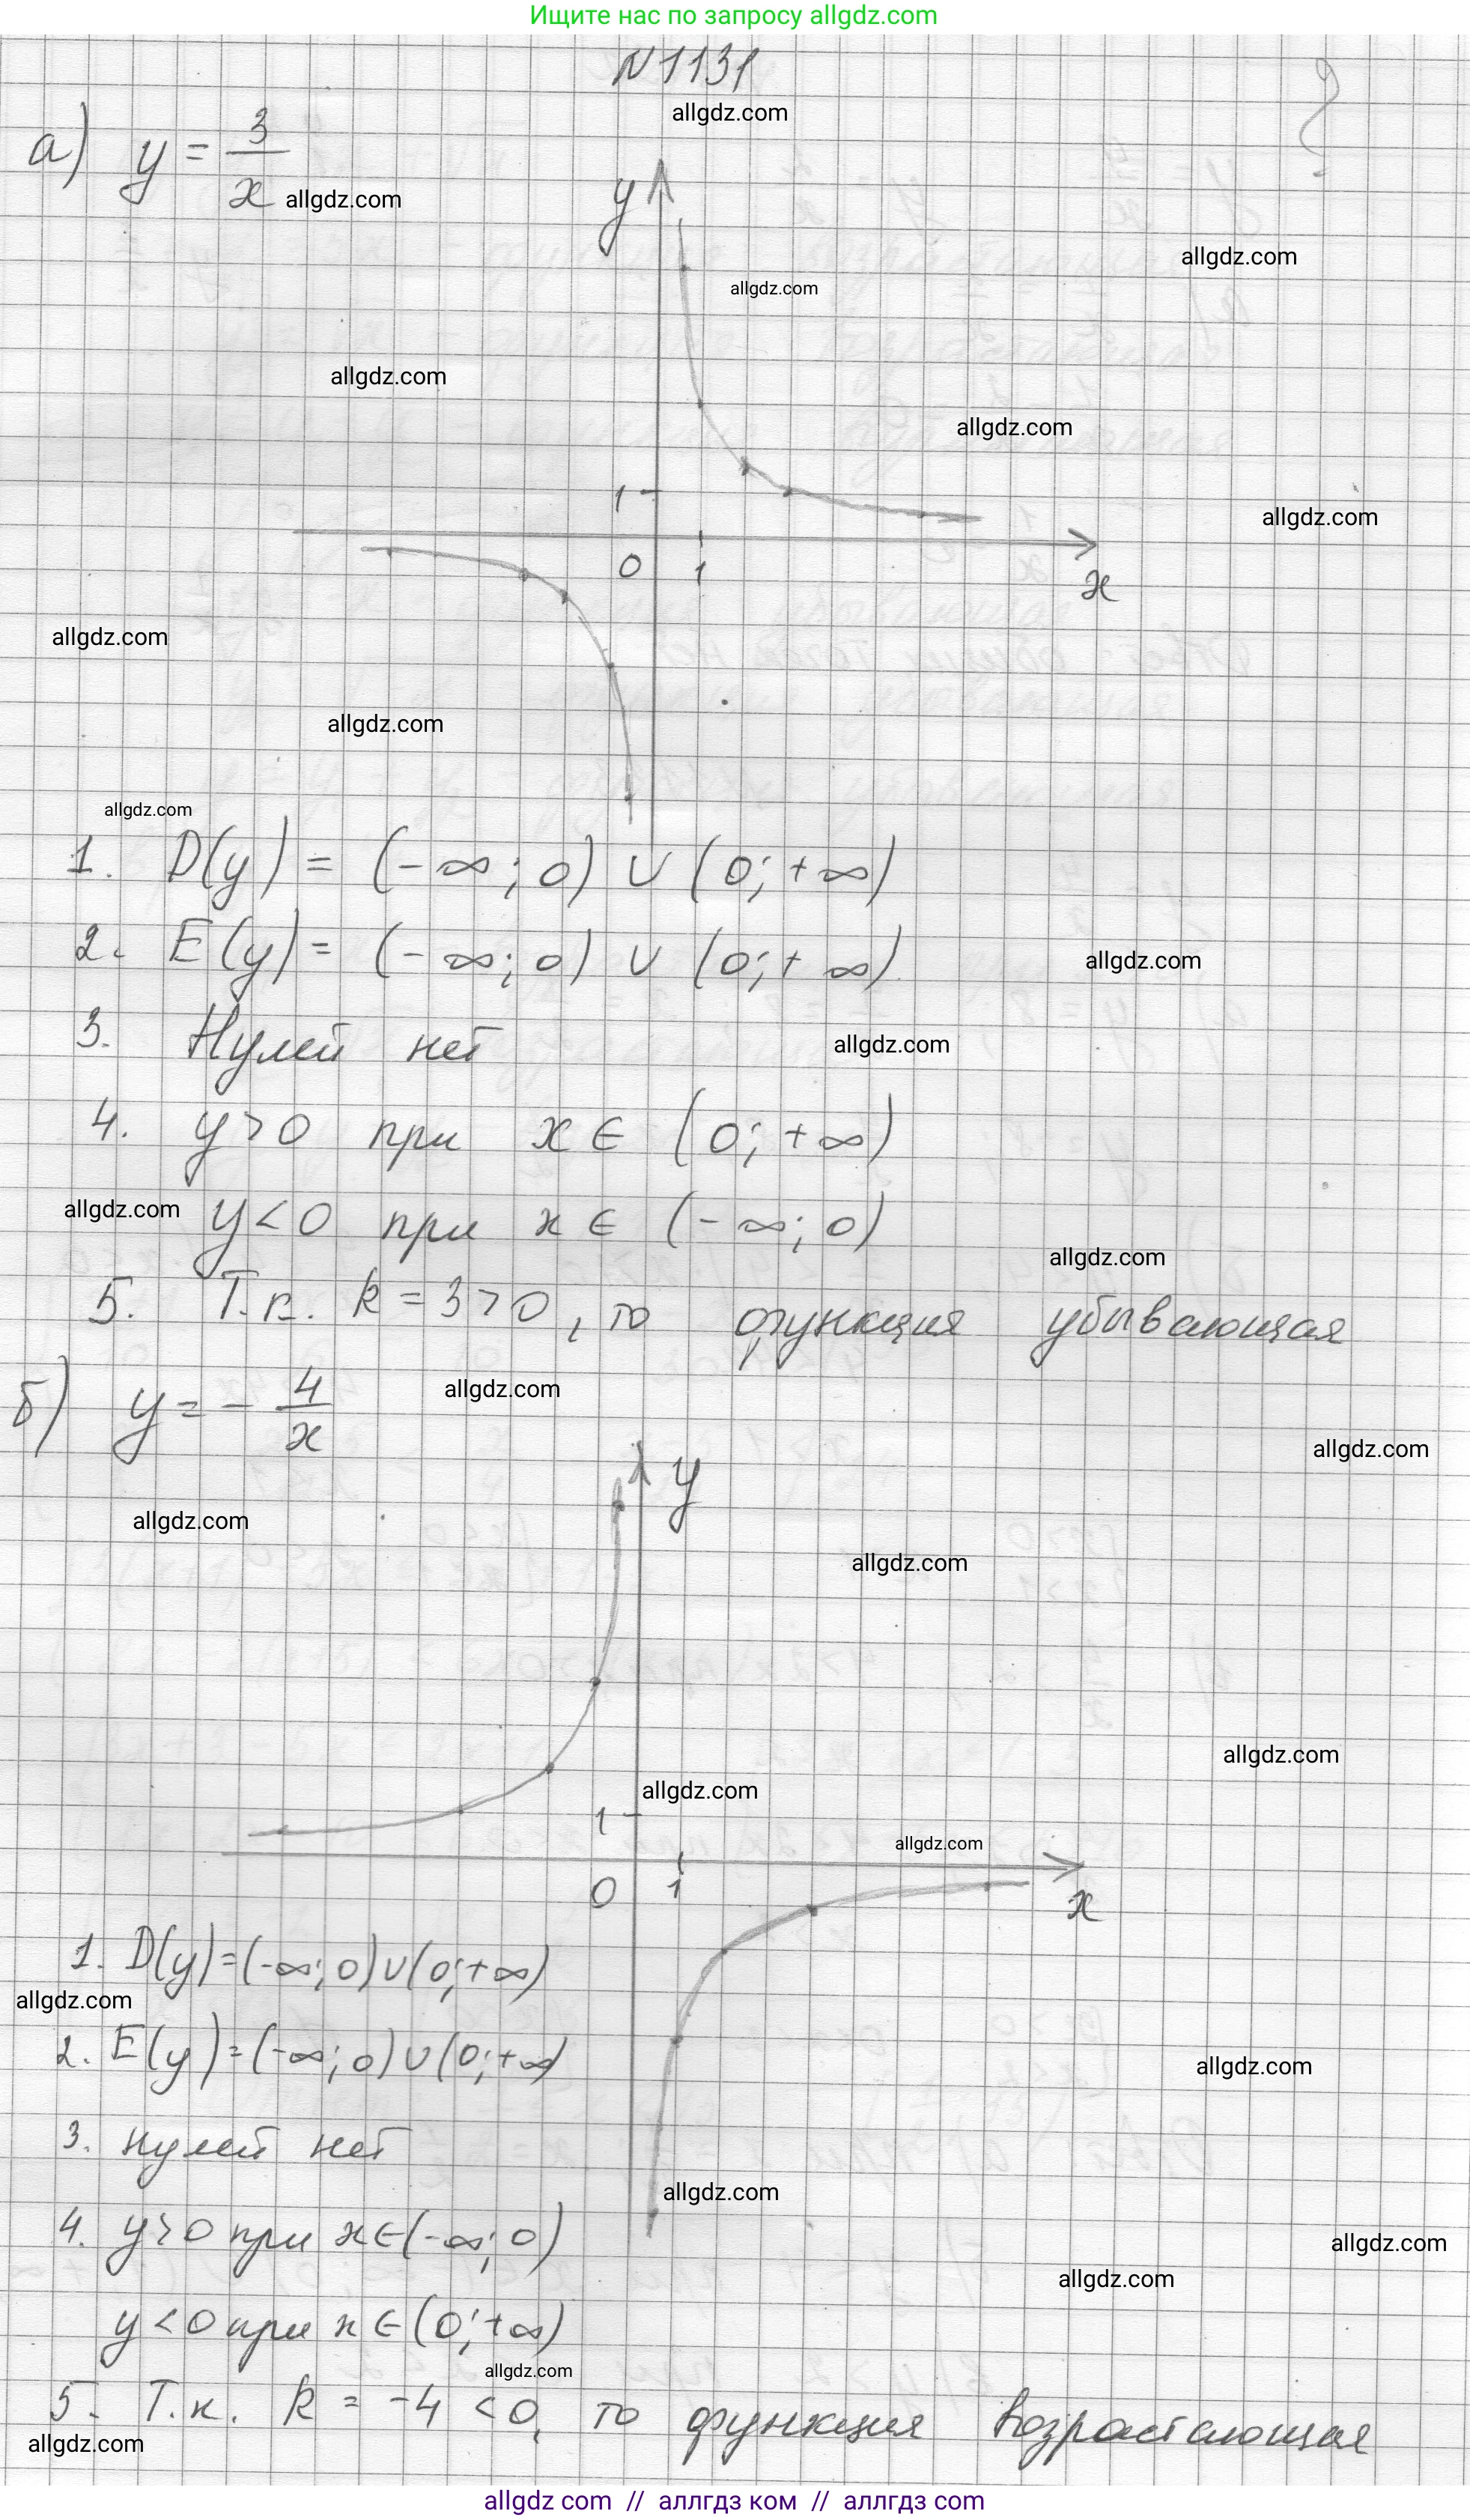 Ищите нас по запросу allgdz.com
N1131
allgdz.com
а) y = 3/x
allgdz.com
y
allgdz.com
allgdz.com
allgdz.com
allgdz.com
1
allgdz.com
0 1 x
allgdz.com
allgdz.com
allgdz.com
1. D(y) = (-∞; 0) ∪ (0; +∞)
2. E(y) = (-∞; 0) ∪ (0; +∞)
allgdz.com
3. Нулей нет
allgdz.com
4. y > 0 при x ∈ (0; +∞)
allgdz.com
y < 0 при x ∈ (-∞; 0)
allgdz.com
5. Т.к. k = 3 > 0, то функция убывающая
б) y = - 4/x
allgdz.com
allgdz.com
y
allgdz.com
allgdz.com
allgdz.com
allgdz.com
1
allgdz.com
0 1 x
1. D(y) = (-∞; 0) ∪ (0; +∞)
allgdz.com
2. E(y) = (-∞; 0) ∪ (0; +∞)
allgdz.com
3. Нулей нет
allgdz.com
4. y > 0 при x ∈ (-∞; 0)
allgdz.com
allgdz.com
y < 0 при x ∈ (0; +∞)
allgdz.com
5. Т.к. k = -4 < 0, то функция возрастающая
allgdz.com
allgdz com // аллгдз ком // allgdz com